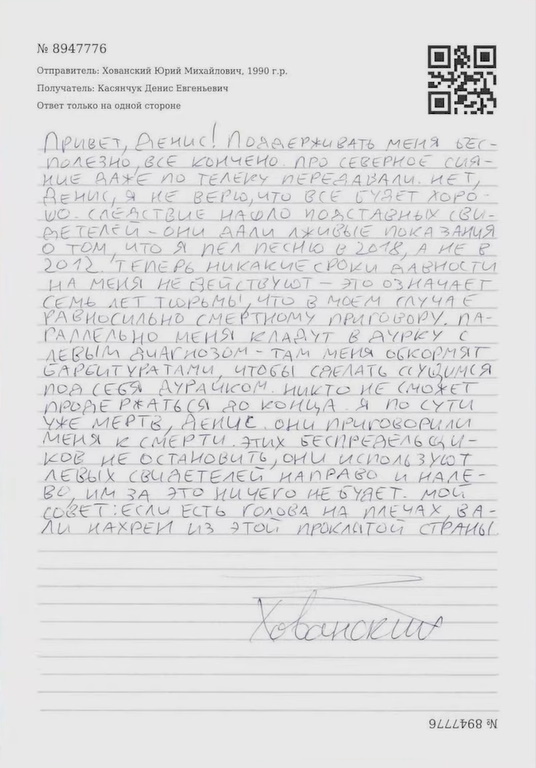 № 8947776
Отправитель: Хованский Юрий Михайлович, 1990 г.р.
Получатель: Касянчук Денис Евгеньевич
Ответ только на одной стороне
ПРИВЕТ, ДЕНИС! ПОДДЕРЖИВАТЬ МЕНЯ БЕС-
ПОЛЕЗНО, ВСЕ КОНЧЕНО. ПРО СЕВЕРНОЕ СИЯ-
НИЕ ДАЖЕ ПО ТЕЛЕКУ ПЕРЕДАВАЛИ. НЕТ,
ДЕНИС, Я НЕ ВЕРЮ, ЧТО ВСЕ БУДЕТ ХОРО-
ШО. СЛЕДСТВИЕ НАШЛО ПОДСТАВНЫХ СВИ-
ДЕТЕЛЕЙ - ОНИ ДАЛИ ЛЖИВЫЕ ПОКАЗАНИЯ
О ТОМ, ЧТО Я ПЕЛ ПЕСНЮ В 2018, А НЕ В
2012. ТЕПЕРЬ НИКАКИЕ СРОКИ ДАВНОСТИ
НА МЕНЯ НЕ ДЕЙСТВУЮТ - ЭТО ОЗНАЧАЕТ
СЕМЬ ЛЕТ ТЮРЬМЫ, ЧТО В МОЕМ СЛУЧАЕ
РАВНОСИЛЬНО СМЕРТНОМУ ПРИГОВОРУ. ПА-
РАЛЛЕЛЬНО МЕНЯ КЛАДУТ В ДУРКУ С
ЛЕВЫМ ДИАГНОЗОМ - ТАМ МЕНЯ ОБКОРМЯТ
БАРБИТУРАТАМИ, ЧТОБЫ СДЕЛАТЬ ССУЩИМСЯ
ПОД СЕБЯ ДУРАЧКОМ. НИКТО НЕ СМОЖЕТ
ПРОДЕРЖАТЬСЯ ДО КОНЦА. Я ПО СУТИ
УЖЕ МЕРТВ, ДЕНИС. ОНИ ПРИГОВОРИЛИ
МЕНЯ К СМЕРТИ. ЭТИХ БЕСПРЕДЕЛЬЩИ-
КОВ НЕ ОСТАНОВИТЬ, ОНИ ИСПОЛЬЗУЮТ
ЛЕВЫХ СВИДЕТЕЛЕЙ НАПРАВО И НАЛЕ-
ВО, ИМ ЗА ЭТО НИЧЕГО НЕ БУДЕТ. МОЙ
СОВЕТ: ЕСЛИ ЕСТЬ ГОЛОВА НА ПЛЕЧАХ, ВА-
ЛИ НАХРЕН ИЗ ЭТОЙ ПРОКЛЯТОЙ СТРАНЫ
Хованский
№ 8947776